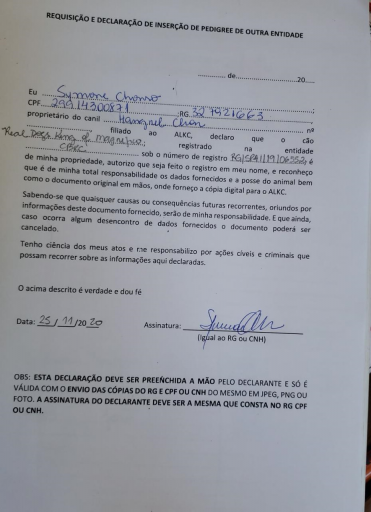 REQUISIÇÃO E DECLARAÇÃO DE INSERÇÃO DE PEDIGREE DE OUTRA ENTIDADE
............ de..........................20.....
Eu Symone
CPF 29914300871 RG 327921663
proprietário do canil nº
filiado ao ALKC, declaro que o cão
Real Dogs King of registrado na entidade
CBKC sob o número de registro é
de minha propriedade, autorizo que seja feito o registro em meu nome, e reconheço
que é de minha total responsabilidade os dados fornecidos e a posse do animal bem
como o documento original em mãos, onde forneço a cópia digital para o ALKC.
Sabendo-se que quaisquer causas ou consequências futuras recorrentes, oriundos por
informações deste documento fornecido, serão de minha responsabilidade. E que ainda,
caso ocorra algum desencontro de dados fornecidos o documento poderá ser
cancelado.
Tenho ciência dos meus atos e me responsabilizo por ações cíveis e criminais que
possam recorrer sobre as informações aqui declaradas.
O acima descrito é verdade e dou fé
Data: 25 / 11 /2020 Assinatura:
(Igual ao RG ou CNH)
OBS: ESTA DECLARAÇÃO DEVE SER PREENCHIDA A MÃO PELO DECLARANTE E SÓ É
VÁLIDA COM O ENVIO DAS CÓPIAS DO RG E CPF OU CNH DO MESMO EM JPEG, PNG OU
FOTO. A ASSINATURA DO DECLARANTE DEVE SER A MESMA QUE CONSTA NO RG CPF
OU CNH.